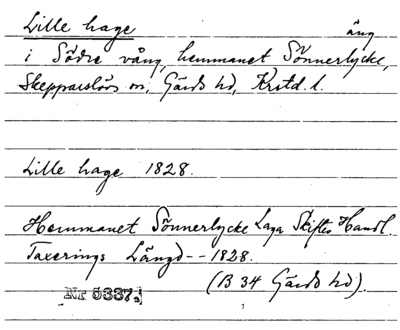 Lille hage äng
i Södre vång, hemmanet Sönnerlycke,
Skepparslövs sn, Gärds hd, Krstd. l.
Lille hage 1828.
Hemmanet Sönnerlycke Laga Skiftes Handl.
Taxerings Längd -- 1828.
(B 34 Gärds hd).
Nr 5337.